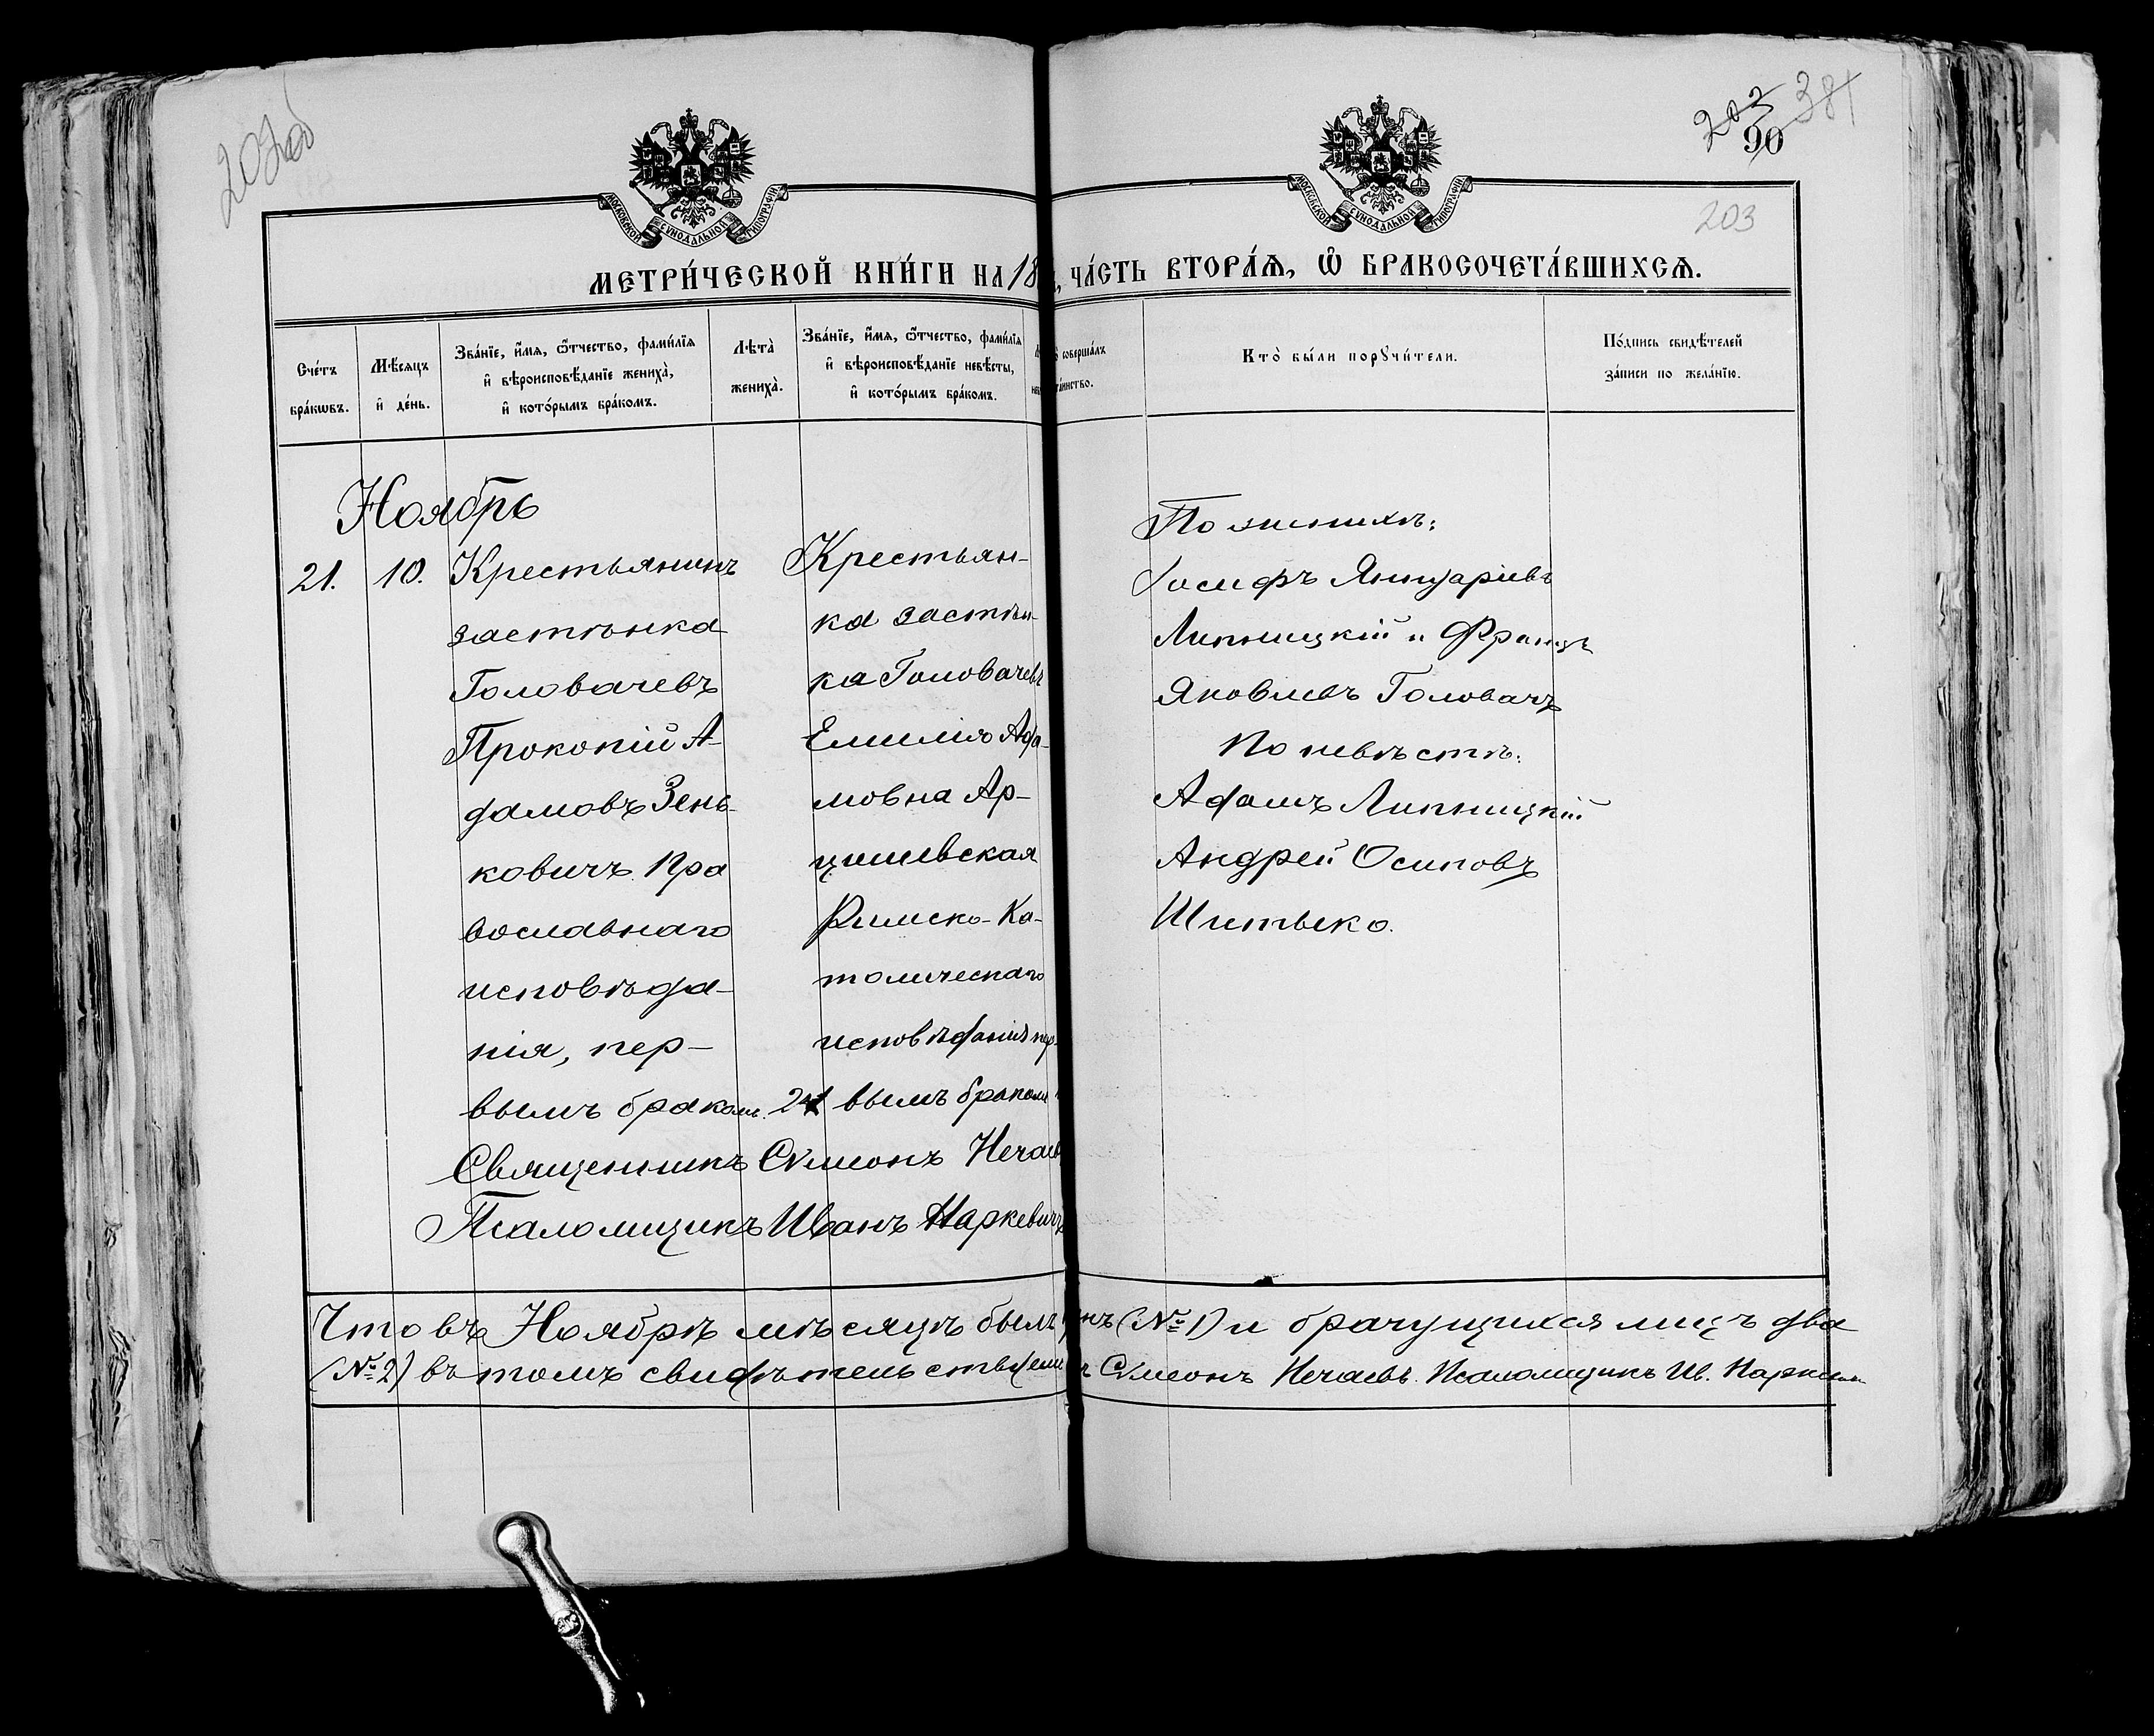 203об
203
381
90
203
МОСКОВСКОЙ СѴНОДАЛЬНОЙ ТИПОГРАФІИ
МОСКОВСКОЙ СѴНОДАЛЬНОЙ ТИПОГРАФІИ
МЕТРИ́ЧЕСКОЙ КНИ́ГИ НА 18
ЧА́СТЬ ВТОРА́Я, Ѿ БРАКОСОЧЕТА́ВШИХСЯ.
Сче́тъ бра́кѡвъ.
Мѣ́сяцъ и҆ де́нь.
Зва́нїе, и҆́мя, ѻ҆́тчество, фами́лїя
и҆ вѣроисповѣ́данїе жениха̀,
и҆ кото́рымъ бра́комъ.
Лѣта̀ жениха̀.
Зва́нїе, и҆́мя, ѻ҆́тчество, фами́лїя
и҆ вѣроисповѣ́данїе невѣ́сты,
и҆ кото́рымъ бра́комъ.
соверша́лъ
Кто̀ бы́ли порꙋчи́тели.
По́дпись свидѣ́телей
за́писи по жела́нїю.
Ноябрь
21.
10.
Крестьянинъ
застѣнка
Головачевъ
Прокопій А-
дамовъ Зень-
ковичъ Пра
вославнаго
исповѣда-
нія, пер-
вымъ бракомъ.
24
Крестьян-
ка застѣн-
ка Головачевъ
Емилія Ада-
мовна Ар-
цишевская
Римско-Ка-
толическаго
исповѣданія пер-
вымъ бракомъ
Священникъ Сѵмеонъ Нечаев
Псаломщикъ Иванъ Наркевичъ
По женихѣ:
Іосифъ Яннуаріевъ
Липницкій и Францъ
Яковлевъ Головачъ
По невѣстѣ:
Адамъ Липницкій
Андрей Осиповъ
Шитыко.
Что въ Ноябрѣ мѣсяцѣ былъ
нъ (№ 1) и брачущихся лицъ два
(№ 2) въ томъ свидѣтельств
Сѵмеонъ Нечаевъ. Псаломщикъ Ив. Наркевичъ